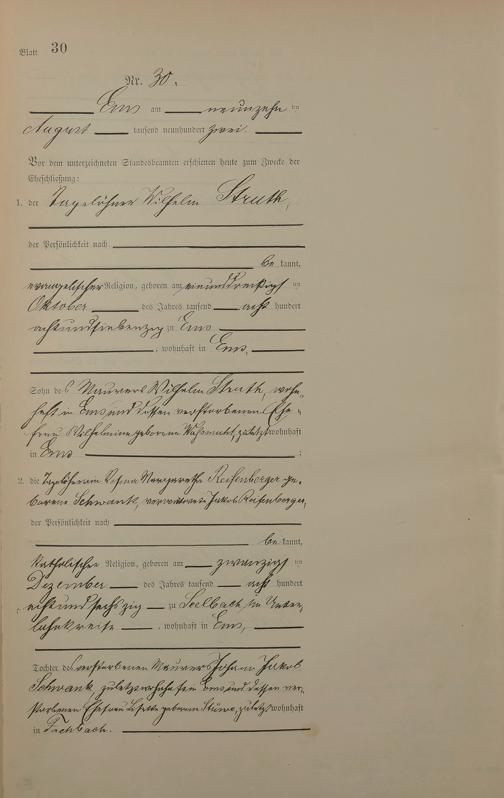 Blatt 30
Nr. 30.
Ems am neunzehn ten
August tausend neunhundert zwei.
Vor dem unterzeichneten Standesbeamten erschienen heute zum Zwecke der
Eheschließung:
1. der Tagelöhner Wilhelm Struth,
der Persönlichkeit nach
be kannt,
evangelischer Religion, geboren am einunddreißigst en
Oktober des Jahres tausend acht hundert
achtundsiebenzig zu Ems
, wohnhaft in Ems,
Sohn des Maurers Wilhelm Struth, wohn-
haft in Ems und dessen verstorbenen Ehe-
frau Wilhelmine geborene zuletzt wohnhaft
in Ems ;
2. die Tagelöhnerin Margaretha Reifenberger ge-
borene Schwank, verwitwete Jakob Reifenberger,
der Persönlichkeit nach
be kannt,
katholischer Religion, geboren am zwanzigst en
Dezember des Jahres tausend acht hundert
sechszig zu Seelbach im Unter-
lahnkreise , wohnhaft in Ems,
Tochter des verstorbenen Maurers Johann Jakob
Schwank, zuletzt wohnhaft in Ems und dessen ver-
storbenen Ehefrau Lisette geborene zuletzt wohnhaft
in Fachbach.